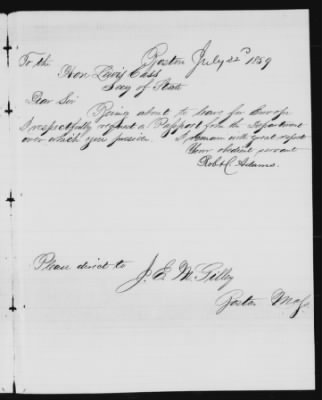 Boston July 22d 1859
To the
Hon Lewis Cass
Secy of State
Dear Sir
Being about to leave for Europe
I respectfully request a Passport from the Department
over which you preside. I remain with great respect
Your obedient servant
Robt C. Adams.
Please direct to
J. E. M. Gilley
Boston Mass